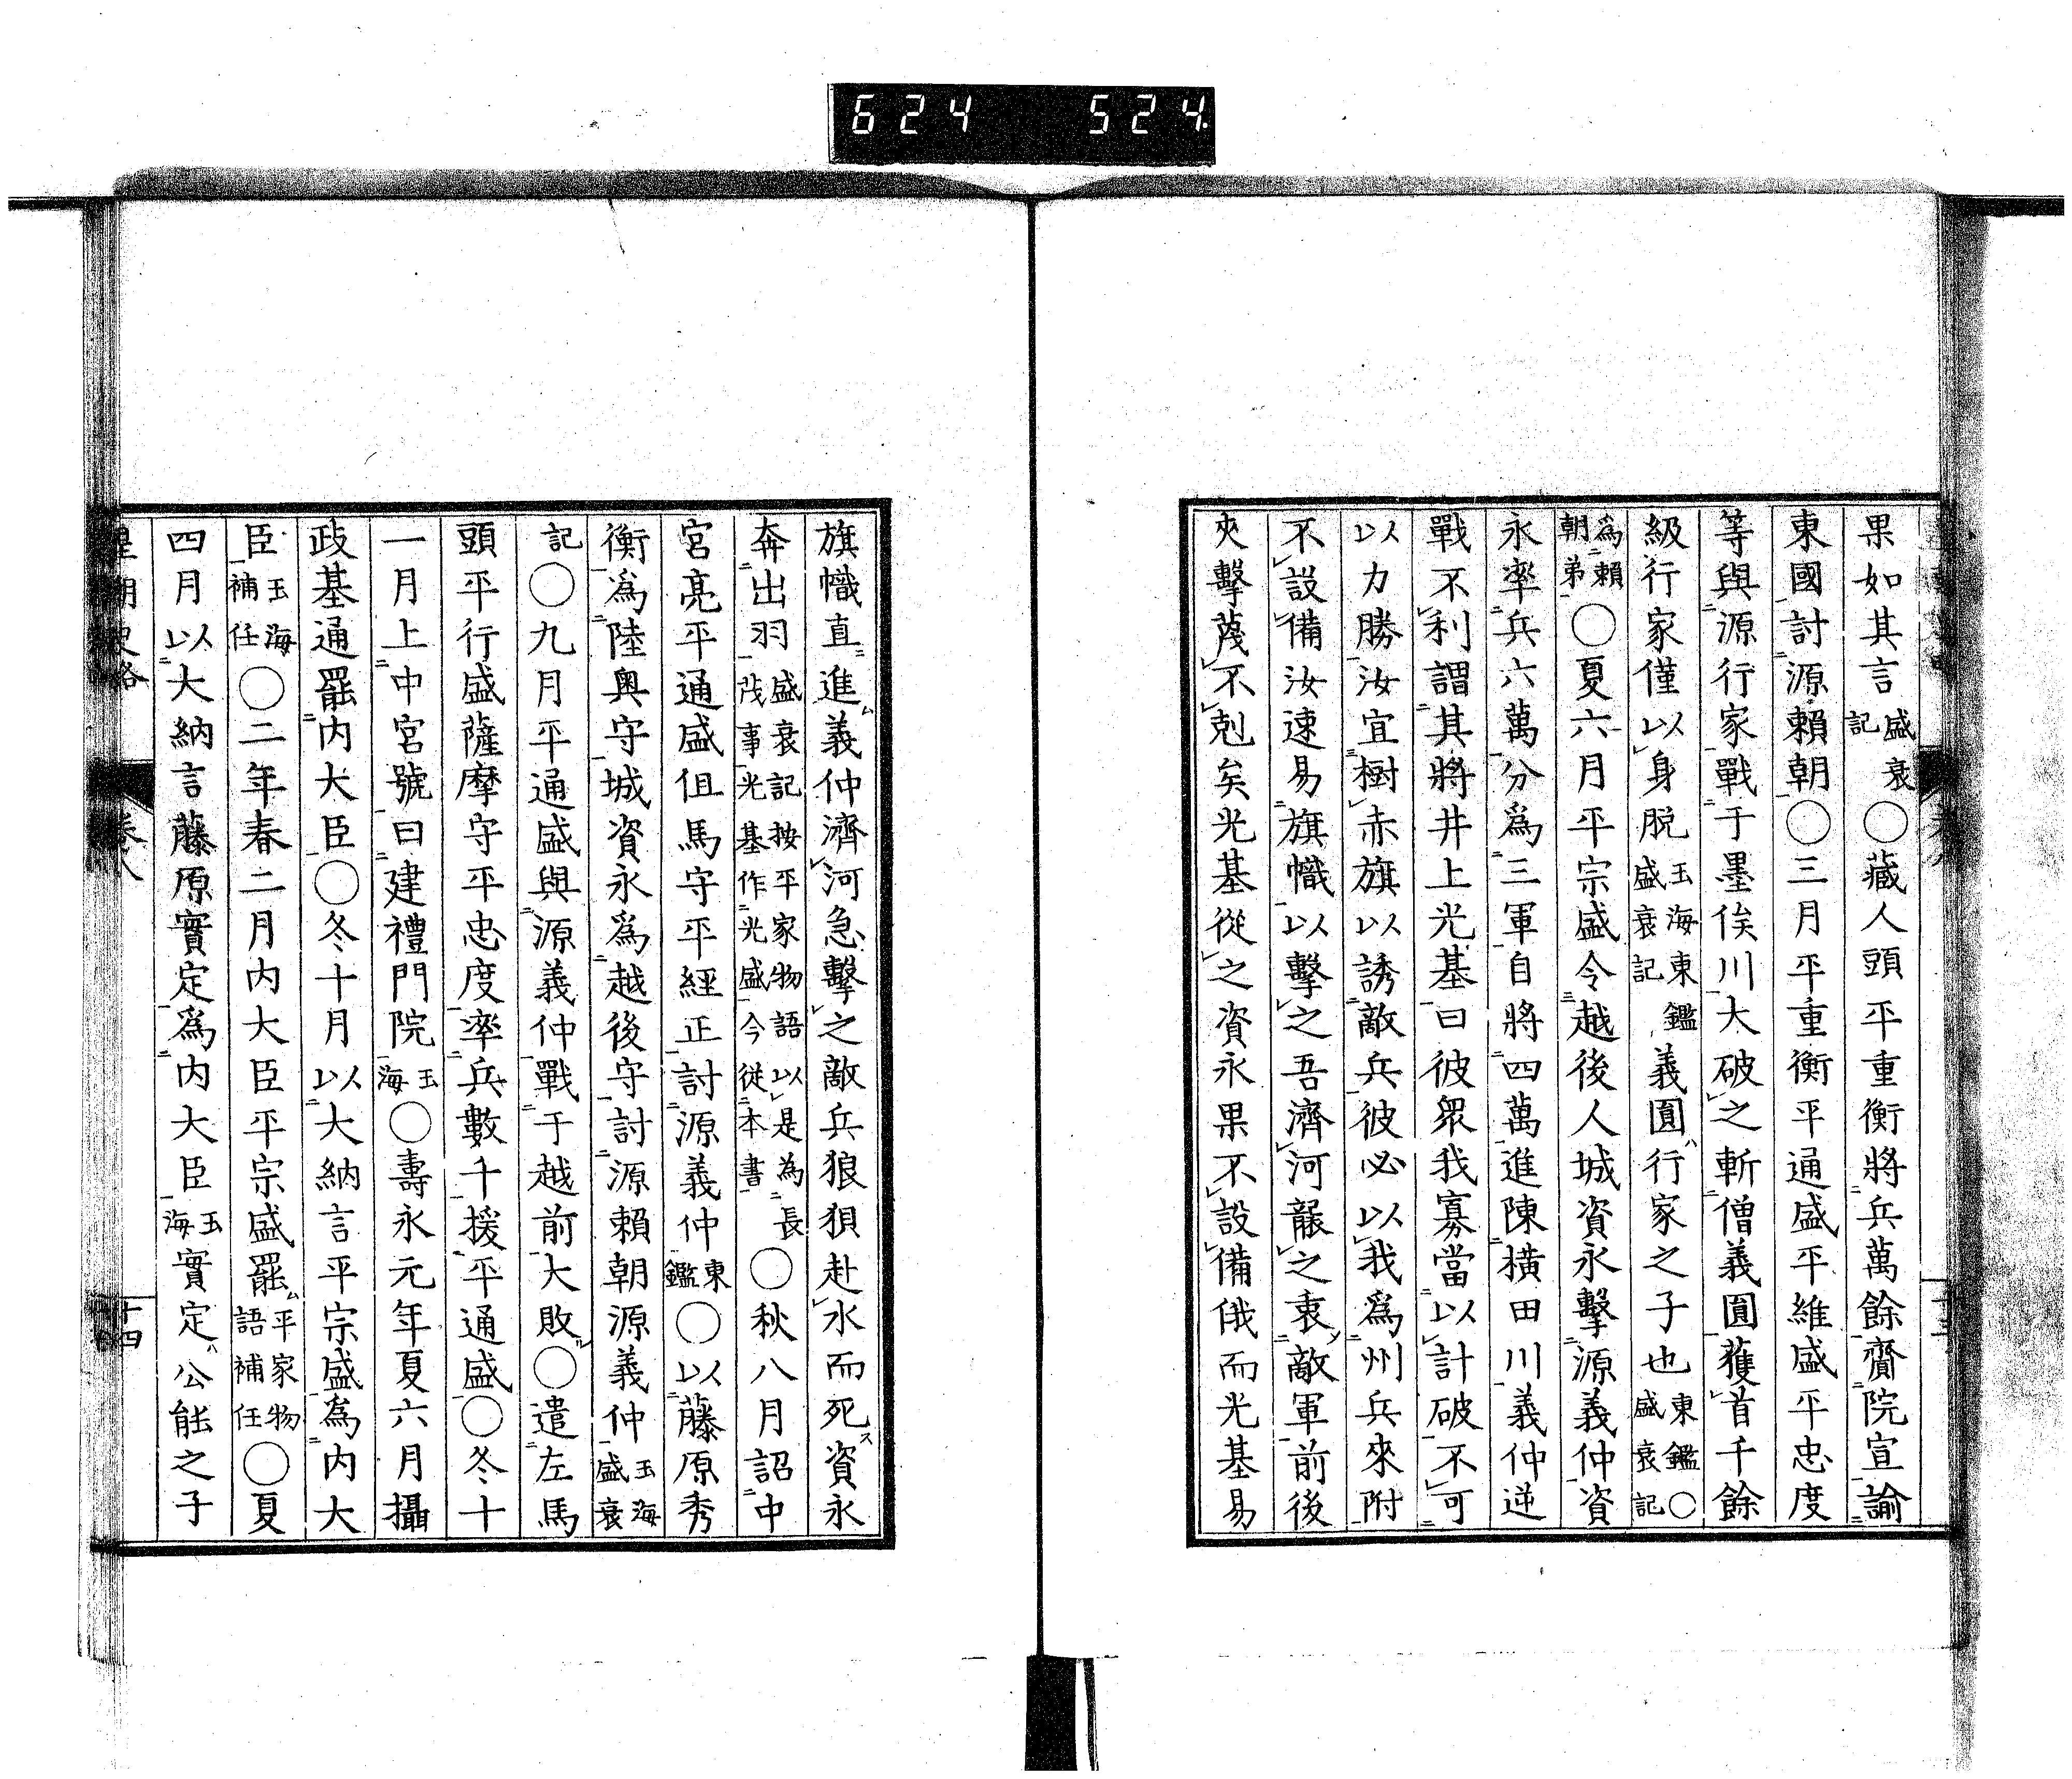 624 524.
果如其言盛衰記〇藏人頭平重衡將兵萬餘齎院宣諭
東國討源賴朝〇三月平重衡平通盛平維盛平忠度
等與源行家戰于墨俣川大破之斬僧義圓獲首千餘
級行家僅以身脱玉海東鑑盛衰記義圓行家之子也東鑑盛衰記〇
爲賴朝弟〇夏六月平宗盛令越後人城資永擊源義仲資
永率兵六萬分爲三軍自將四萬進陳橫田川義仲逆
戰不利謂其將井上光基曰彼眾我寡當以計破不可
以力勝汝宜樹赤旗以誘敵兵彼必以我爲州兵來附
不設備汝速易旗幟以擊之吾濟河襲之表敵軍前後
夾擊蔑不剋矣光基從之資永果不設備俄而光基易
旗幟直進義仲濟河急擊之敵兵狼狽赴水而死資永
奔出羽盛衰記按平家物語以是為長茂事光基作光盛今從本書〇秋八月詔中
宮亮平通盛但馬守平經正討源義仲東鑑〇以藤原秀
衡爲陸奧守城資永爲越後守討源賴朝源義仲玉海盛衰
記〇九月平通盛與源義仲戰于越前大敗〇遣左馬
頭平行盛薩摩守平忠度率兵數千援平通盛〇冬十
一月上中宮號曰建禮門院玉海〇壽永元年夏六月攝
政基通罷內大臣〇冬十月以大納言平宗盛爲內大
臣玉海補任〇二年春二月內大臣平宗盛罷平家物語補任〇夏
四月以大納言藤原實定爲內大臣玉海實定公能之子
皇朝史略 卷八 十四